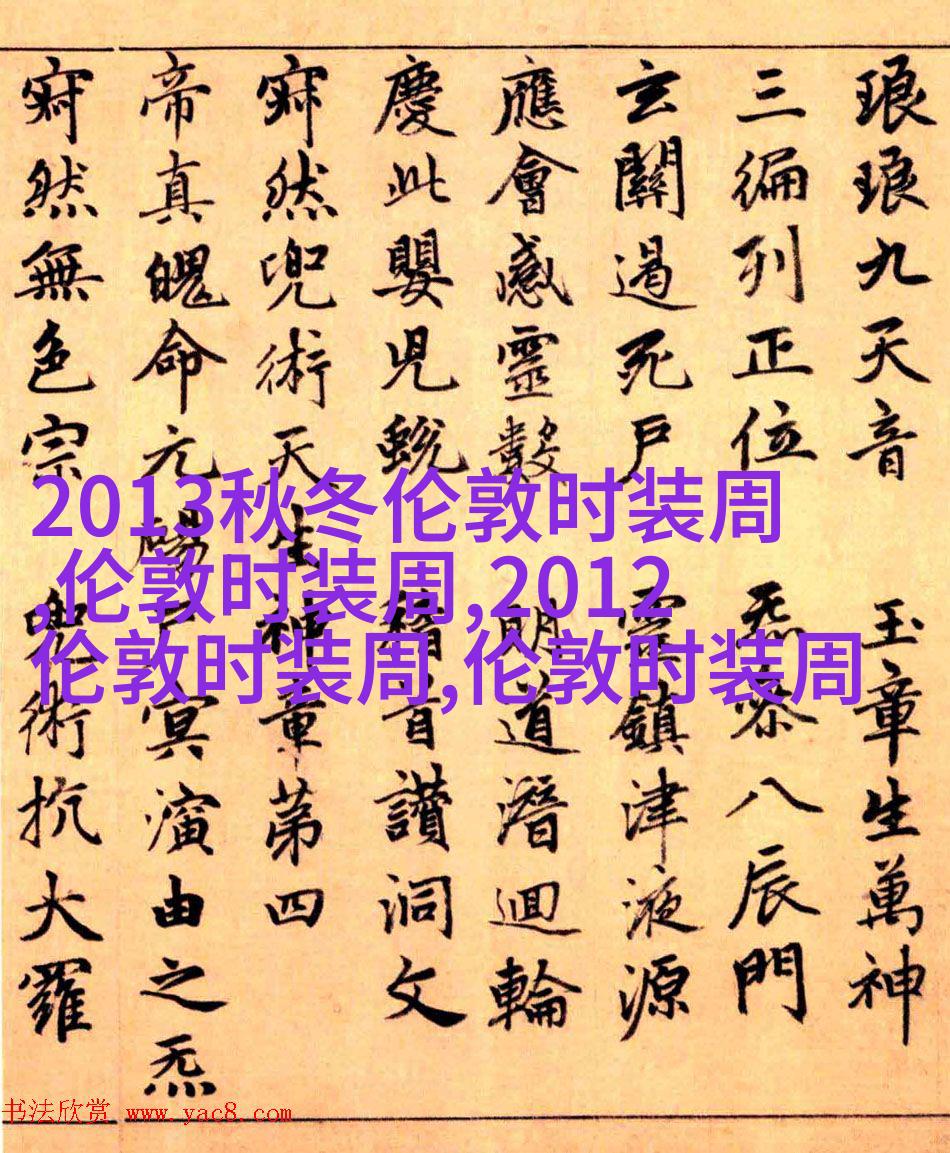 琅琅九天音 玉章生萬神
三徧列正位 炁八辰門
玄關遏死戶 靈鎮津液源
應會感靈數 明道潛迴輪
慶此嬰兒蛻 稽首讚洞文
寂然兜術天生神章第四
帝真魄命元陽冥演由之炁
寂然無色宗 兜術抗大羅
2013秋冬伦敦时装周
,伦敦时装周,2012
伦敦时装周,伦敦时装周
书法欣赏 www.yac8.com